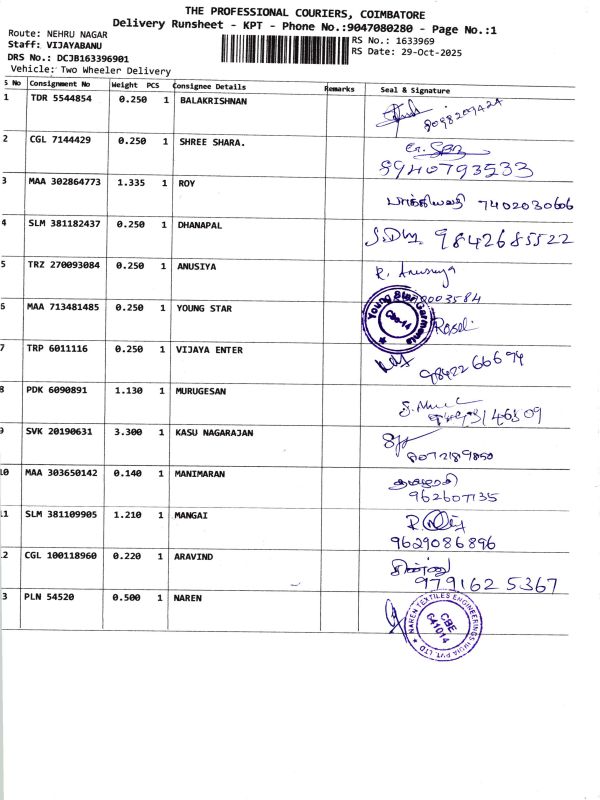 THE PROFESSIONAL COURIERS, COIMBATORE
Delivery Runsheet - KPT - Phone No.:9047080280 - Page No.:1
Route: NEHRU NAGAR
RS No.: 1633969
Staff: VIJAYABANU
RS Date: 29-Oct-2025
DRS No.: DCJB163396901
Vehicle: Two Wheeler Delivery
S No Consignment No Weight PCS Consignee Details Remarks Seal & Signature
1 TDR 5544854 0.250 1 BALAKRISHNAN
2 CGL 7144429 0.250 1 SHREE SHARA.
8940793533
3 MAA 302864773 1.335 1 ROY
7402030606
4 SLM 381182437 0.250 1 DHANAPAL
9842685522
5 TRZ 270093084 0.250 1 ANUSIYA R. Anusiya
6 MAA 713481485 0.250 1 YOUNG STAR
Young Star Garments
Cbe-14
7 TRP 6011116 0.250 1 VIJAYA ENTER
9842266694
8 PDK 6090891 1.130 1 MURUGESAN
9 SVK 20190631 3.300 1 KASU NAGARAJAN
10 MAA 303650142 0.140 1 MANIMARAN
11 SLM 381109905 1.210 1 MANGAI
9629086896
2 CGL 100118960 0.220 1 ARAVIND
9791625367
3 PLN 54520 0.500 1 NAREN
NAREN TEXTILES ENGINEERINGS INDIA PVT. LTD
CBE
641014